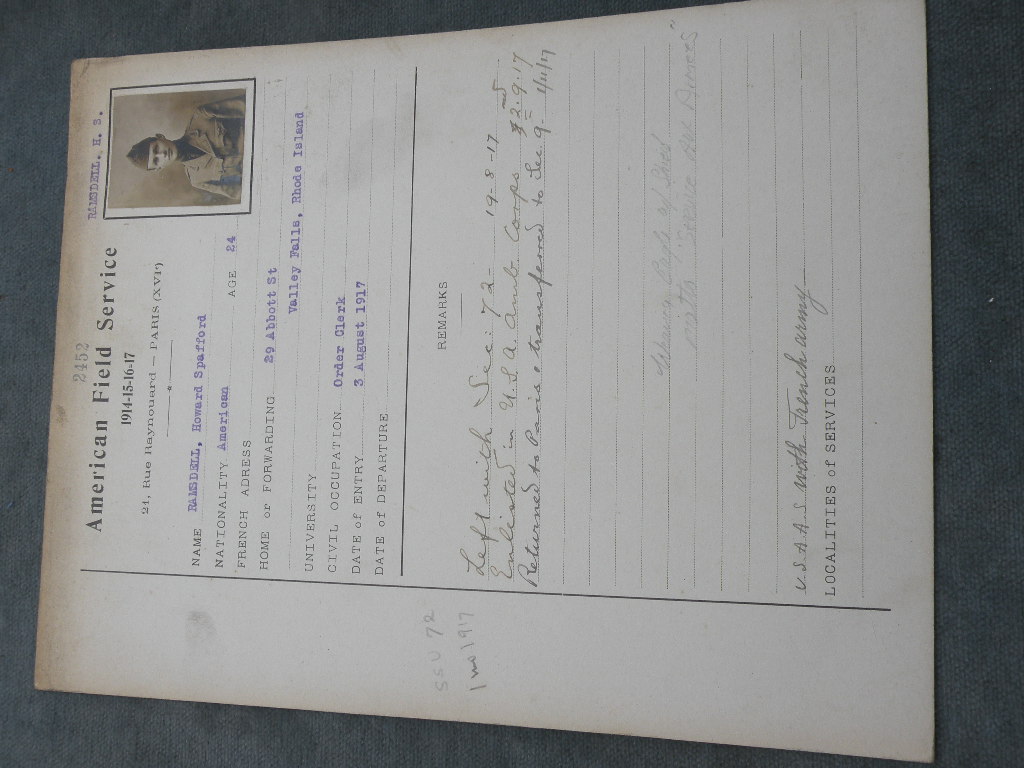 2452
RAMSDELL. H. S.
American Field Service
1914-15-16-17
21, Rue Raynouard — PARIS (XVIe)
NAME RAMSDELL, Howard Spafford
NATIONALITY American AGE 24
FRENCH ADRESS
HOME or FORWARDING 29 Abbott St
Valley Falls, Rhode Island
UNIVERSITY
CIVIL OCCUPATION Order Clerk
DATE of ENTRY 3 August 1917
DATE of DEPARTURE
REMARKS
SSU 72
1 mo 1917
Left with Sec: 72 - 19-8-17
Enlisted in U.S.A. Amb. Corps 2.9.17
Returned to Paris & transferred to Sec 9 -
of
"Service Aux Armées"
U.S.A.A.S. with French army
LOCALITIES of SERVICES